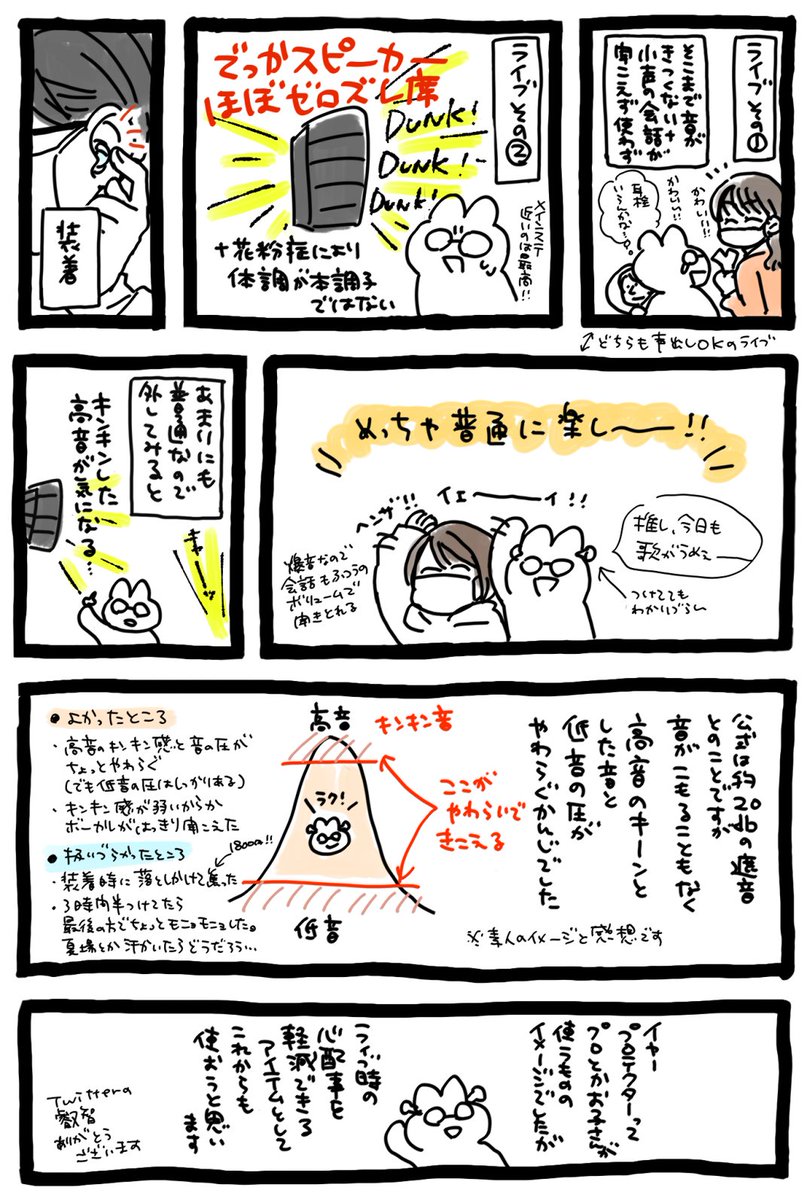 ライブ その①
そこまで音が
きつくない+
小声の会話が
聞こえず使わず
かわいい!!
かわいい!!
耳栓
いらんかな…?
↑どちらも声出しOKのライブ
ライブ その②
でっかスピーカー
ほぼゼロズレ席
DUNK!
DUNK!
DUNK!
メインステ
近いのは最高!!
+花粉症により
体調が本調子
ではない
装着
めっちゃ普通に楽し〜〜!!
イェーーイ!!
推し、今日も
歌がうめぇ〜
つけてても
わかりづらい
爆音なので
会話もふつうの
ボリュームで
聞きとれる
あまりにも
普通なので
外してみると
キャーーッ
キンキンした
高音が気になる…
公式は約20dbの遮音
とのことですが
音がこもることもなく
高音のキーンと
した音と
低音の圧が
やわらぐかんじでした
※素人のイメージと感想です
高音
キンキン音
ラク!
ここが
やわらいで
きこえる
低音
●よかったところ
・高音のキンキン感と音の圧が
ちょっとやわらぐ
(でも低音の圧はしっかりある)
・キンキン感が弱いからか
ボーカルがはっきり聞こえた
●扱いづらかったところ
・装着時に落としかけて焦った
・3時間半つけてたら
最後の方でちょっとモニョモニョした。
夏場とか汗かいたらどうだろう…
イヤー
プロテクターって
プロとかお子さんが
使うものの
イメージでしたが
ライブ時の
心配事を
軽減できる
アイテムとして
これからも
使おうと思い
ます
Twitterの
叡智
ありがとう
ございます